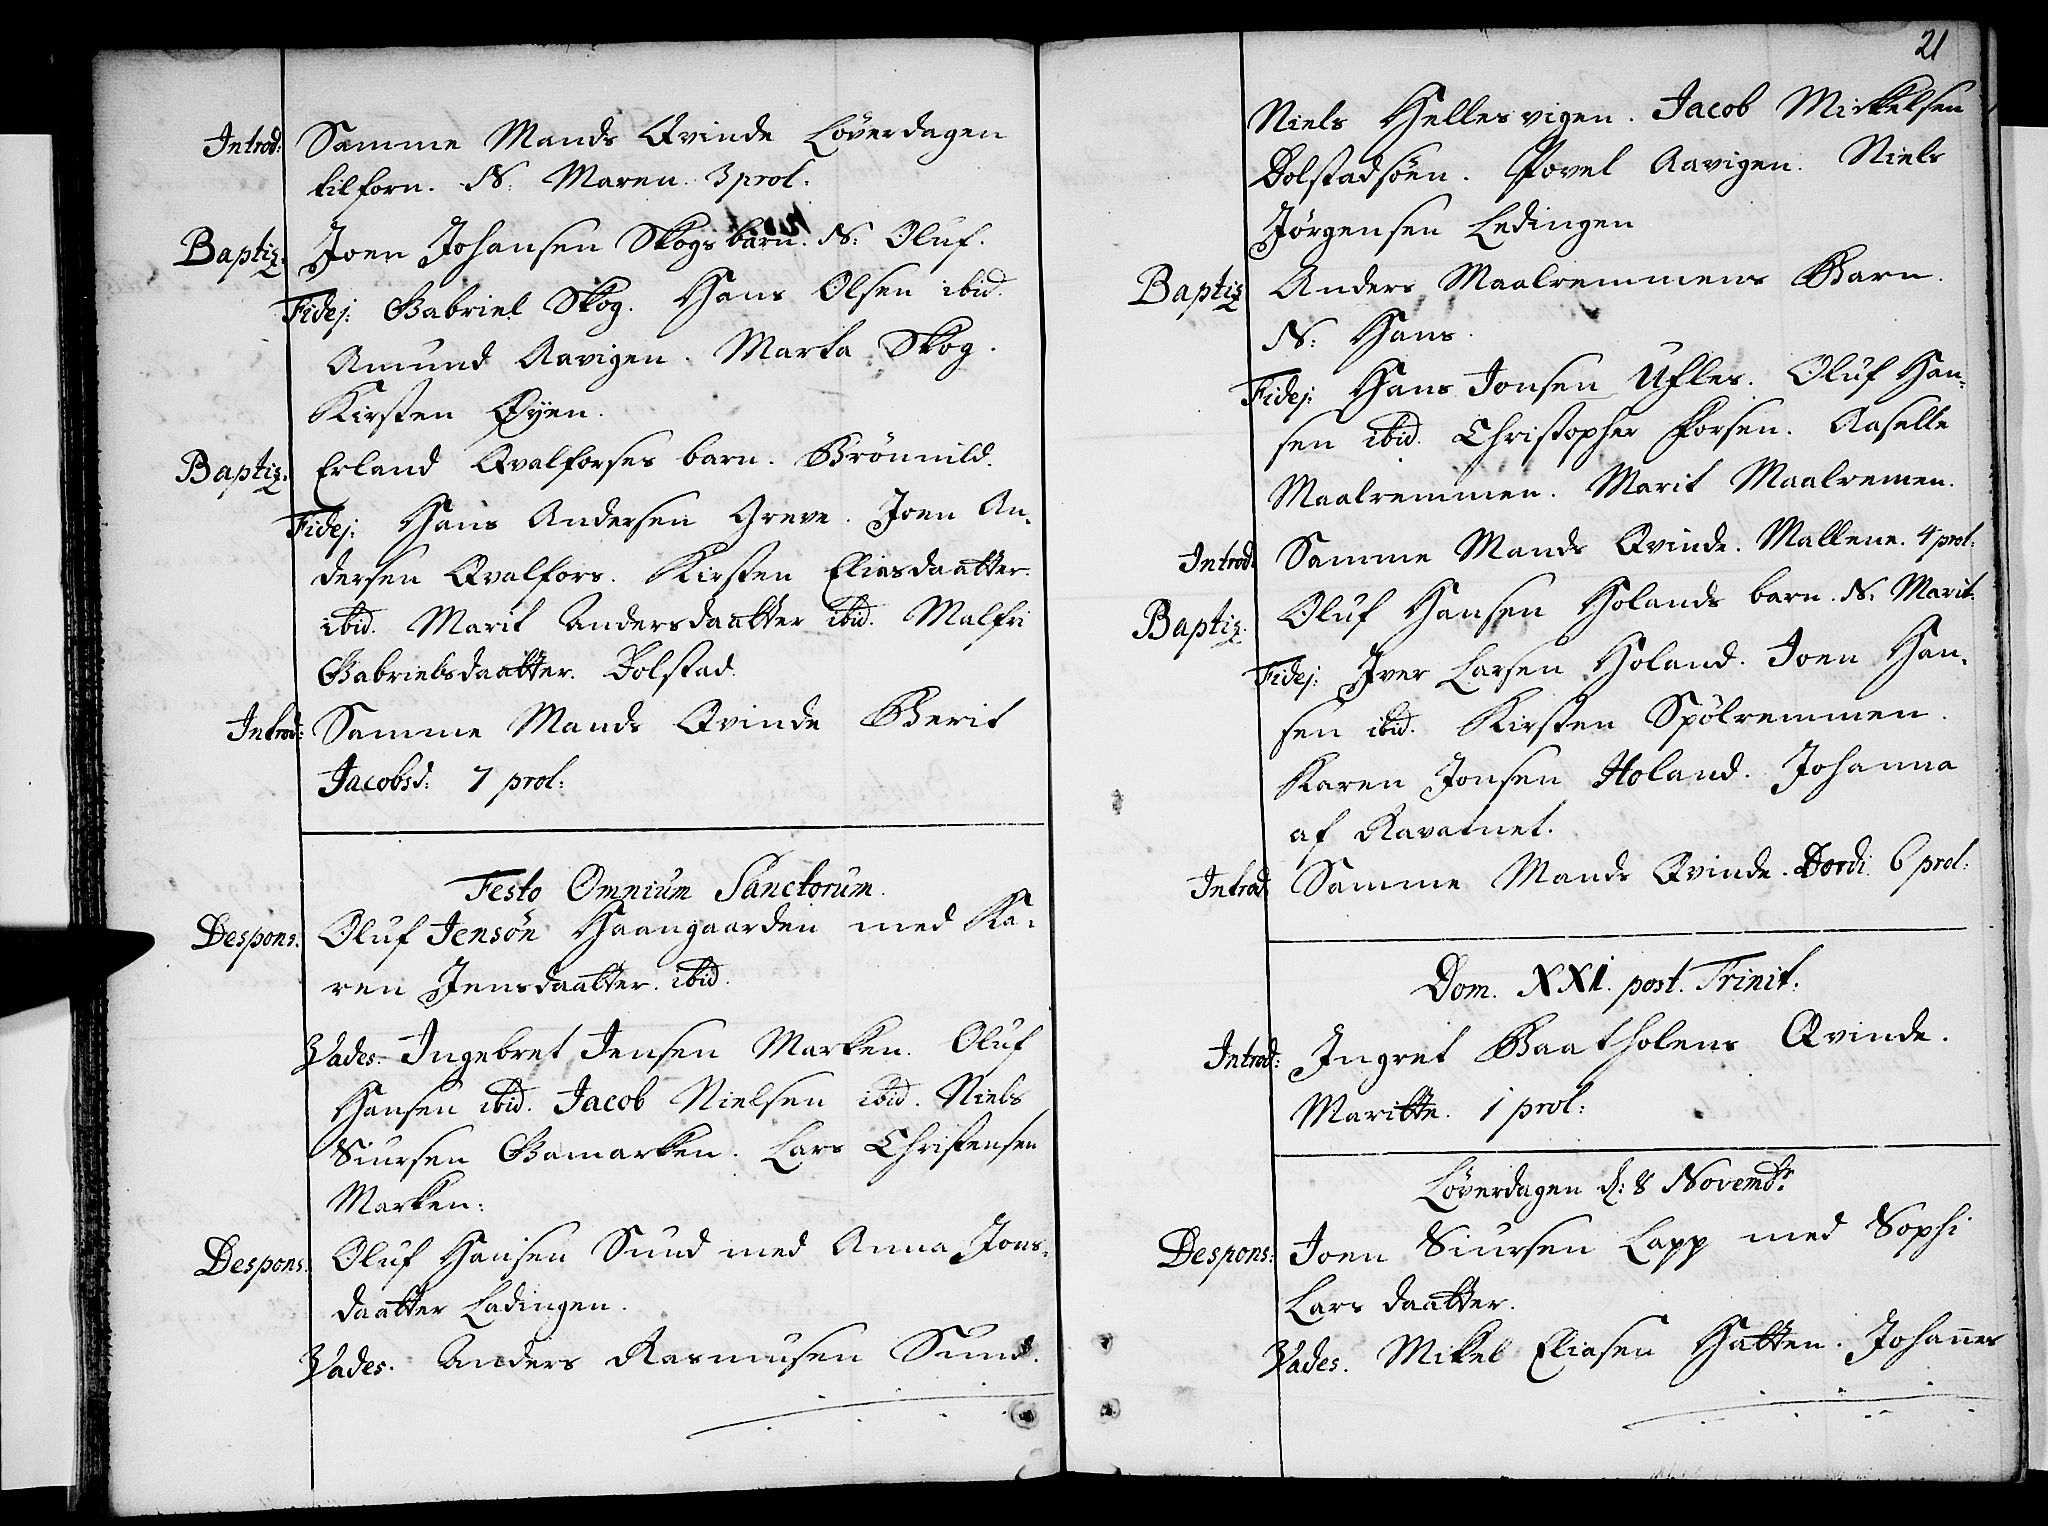 Introd: Samme Mands Qvinde Löverdagen
tilforn. N: Maren. 3 prol:
Baptiz. Joen Johansen Skogs barn. N: Oluf.
Fidej: Gabriel Skog. Hans Olsen ibid.
Amund Aavigen. Marta Skog.
Kirsten Öyen.
Baptiz. Erland Qvalforses barn. Brönnild.
Fidej: Hans Andersen Greve. Joen An-
dersen Qvalfors. Kirsten Eliasdaatter
ibid. Marit Andersdaatter ibid. Malfri
Gabrielsdaatter. Dolstad.
Introd: Samme Mands Qvinde Berit
Jacobsd: 7 prol:
Festo Omnium Sanctorum.
Despons. Oluf Jensön Haangaarden med Ka-
ren Jensdaatter. ibid.
Vades. Ingebret Jensen Marken. Oluf
Hansen ibid. Jacob Nielsen ibid. Niels
Siursen Gamarken. Lars Christensen
Marken:
Despons. Oluf Hansen Sund med Anna Jons-
daatter Ladingen.
Vades. Anders Rasmusen Sund.
21
Niels Hellesvigen. Jacob Mickelsen
Dolstadsöen. Povel Aavigen. Niels
Jörgensen Ledingen
Baptiz Anders Maalremmens Barn.
N: Hans.
Fidej: Hans Jonsen Ufles. Oluf Han-
sen ibid. Christopher Forsen. Aaselle
Maalremmen. Marit Maalremen.
Introd: Samme Mands Qvinde. Mallene. 4 prol:
Baptiz. Oluf Hansen Holands barn. N: Marit.
Fidej: Iver Larsen Holand. Joen Han-
sen ibid. Kirsten Spölremmen.
Karen Jonsen Holand. Johanna
af Ravatnet.
Introd. Samme Mands Qvinde. Dordi. 6 prol:
Dom. XXI. post. Trinit:
Introd: Ingret Baatholens Qvinde.
Maritte. 1 prol:
Löverdagen d: 8 Novembr:
Despons: Joen Siursen Lapp med Sophi
Lars daatter.
Vades. Mikel Eliasen Hatten. Johannes